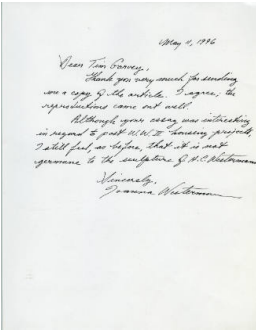 May 11, 1996
Dear Tim Garvey,
Thank you very much for sending
me a copy of the article. I agree; the
reproductions came out well.
Although your essay was interesting
in regard to post W.W. II housing projects,
I still feel, as before, that it is not
germane to the sculpture of H.C. Westermann
Sincerely,
Joanna Westermann